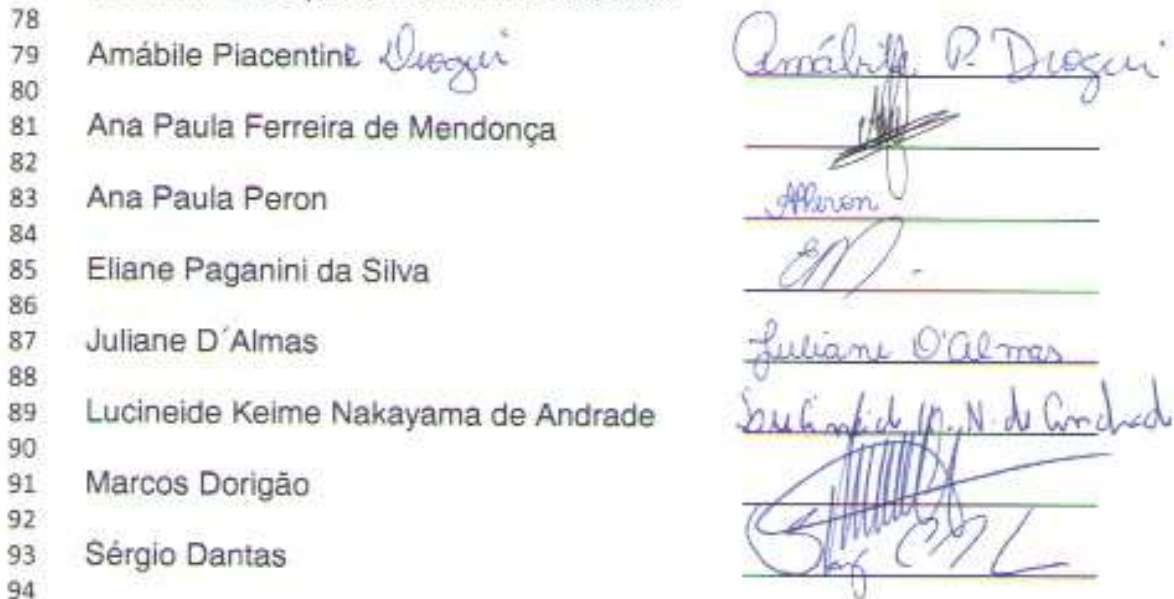 78
79 Amábile Piacentine Drogui Amábille P. Drogui
80
81 Ana Paula Ferreira de Mendonça
82
83 Ana Paula Peron APeron
84
85 Eliane Paganini da Silva
86
87 Juliane D´Almas Juliane D'Almas
88
89 Lucineide Keime Nakayama de Andrade N. de Andrade
90
91 Marcos Dorigão
92
93 Sérgio Dantas
94